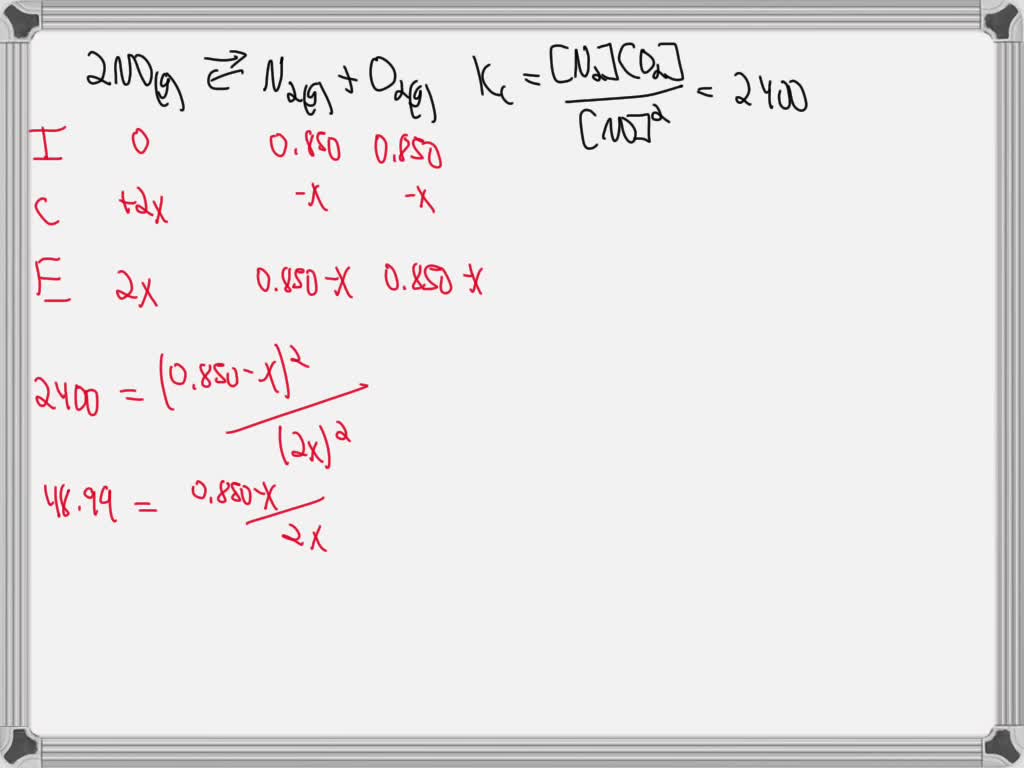 2NO(g) ⇌ N2(g) + O2(g) Kc = [N2][O2] / [NO]^2 = 2400
I 0 0.850 0.850
C +2x -x -x
E 2x 0.850-x 0.850-x
2400 = (0.850-x)^2 / (2x)^2
48.99 = 0.850-x / 2x